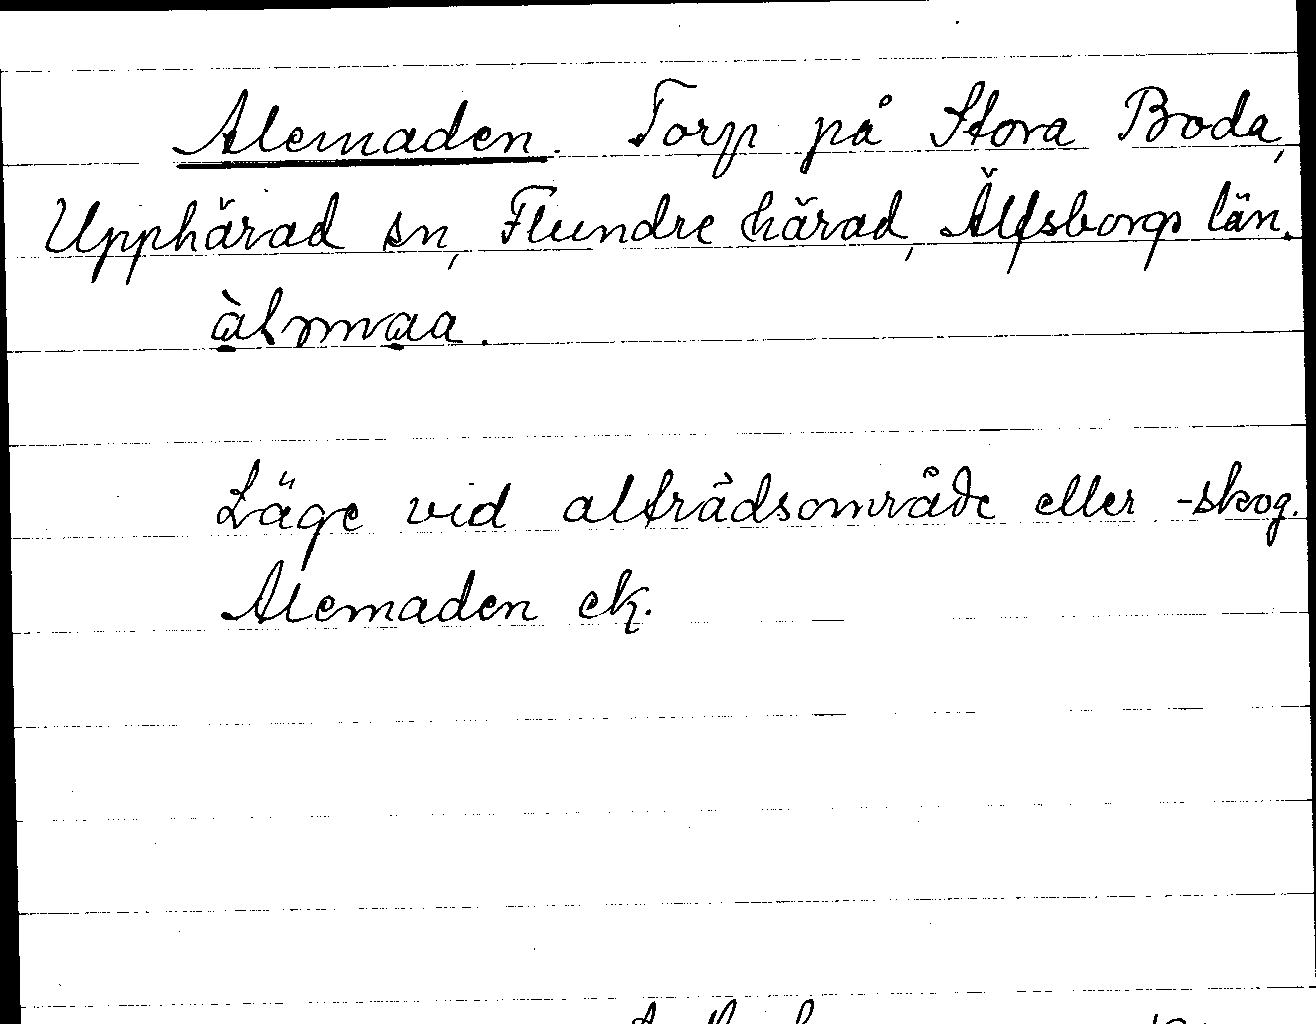 Alemaden. Torp på Stora Boda,
Upphärad sn, Flundre härad, Älfsborgs län.
àlmmaa.
Läge vid alträdsområde eller -skog.
Alemaden ek.